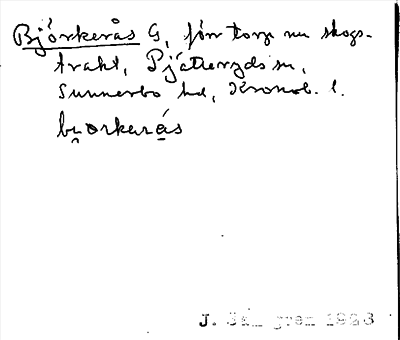 Björkerås G, förr torp nu skogs-
trakt, Pjätteryds sn,
Sunnerbo hd, Kronob. l.
bjorkerås
J. Sahlgren 1928